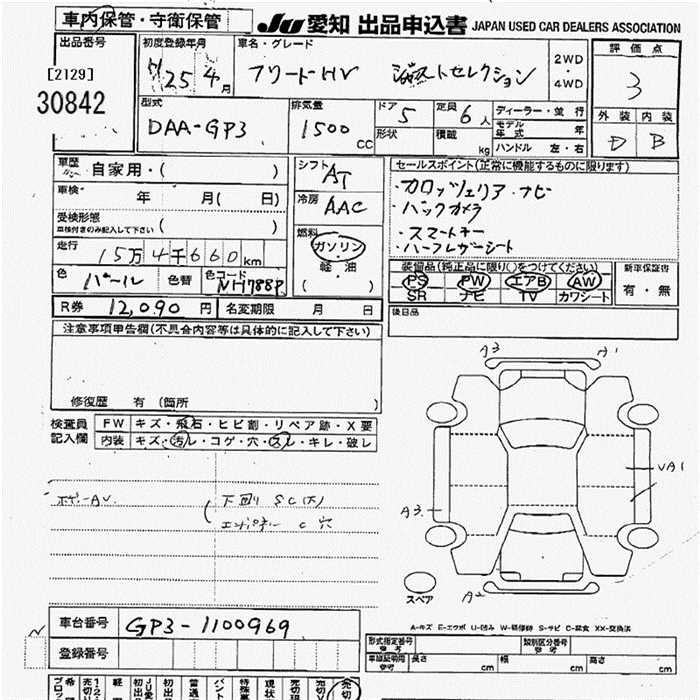 車内保管・守衛保管
JU 愛知 出品申込書 JAPAN USED CAR DEALERS ASSOCIATION
出品番号
[2129]
30842
初度登録年月
25年 4月
車名・グレード
フリードHV ジャストセレクション
2WD
・
4WD
評価点
3
外装 内装
D B
型式
DAA-GP3
排気量
1500 CC
ドア 5
形状
定員 6人
積載 kg
ディーラー・並行
モデル年式 年
ハンドル 左・右
車歴 自家用・( )
車検 年 月( 日)
受検形態
車検付きのみ記入して下さい ( )
走行 15万4千660km
色 パール 色替 色コード NH788P
シフト AT
冷房 AAC
燃料
ガソリン
・
軽・油
( )
セールスポイント(正常に機能するものに限ります)
・カロッツェリア ナビ
・バックカメラ
・スマートキー
・ハーフレザーシート
装備品(純正品に限り()をつけてください)
PS PW エアB AW
SR ナビ TV カワシート
新車保証書
有・無
R券 12,090円 名変期限 月 日
後日品
注意事項申告欄(不具合内容等は具体的に記入して下さい)
修復歴 有 (箇所 )
検査員記入欄
FW キズ・飛石・ヒビ割・リペア跡・X要
内装 キズ・汚レ・コゲ・穴・スレ・キレ・破レ
ボデーAV
下回り SC(大)
エンドパネル C 穴
A3 A1
VA1
A3
A2
スペア
A-キズ E-エクボ U-凹み W-補修跡 S-サビ C-腐食 XX-交換済
車台番号 GP3-1100969
登録番号
型式指定番号 参考
類別区分番号 参考
車庫証明用 参考 長さ cm 幅 cm 高さ cm